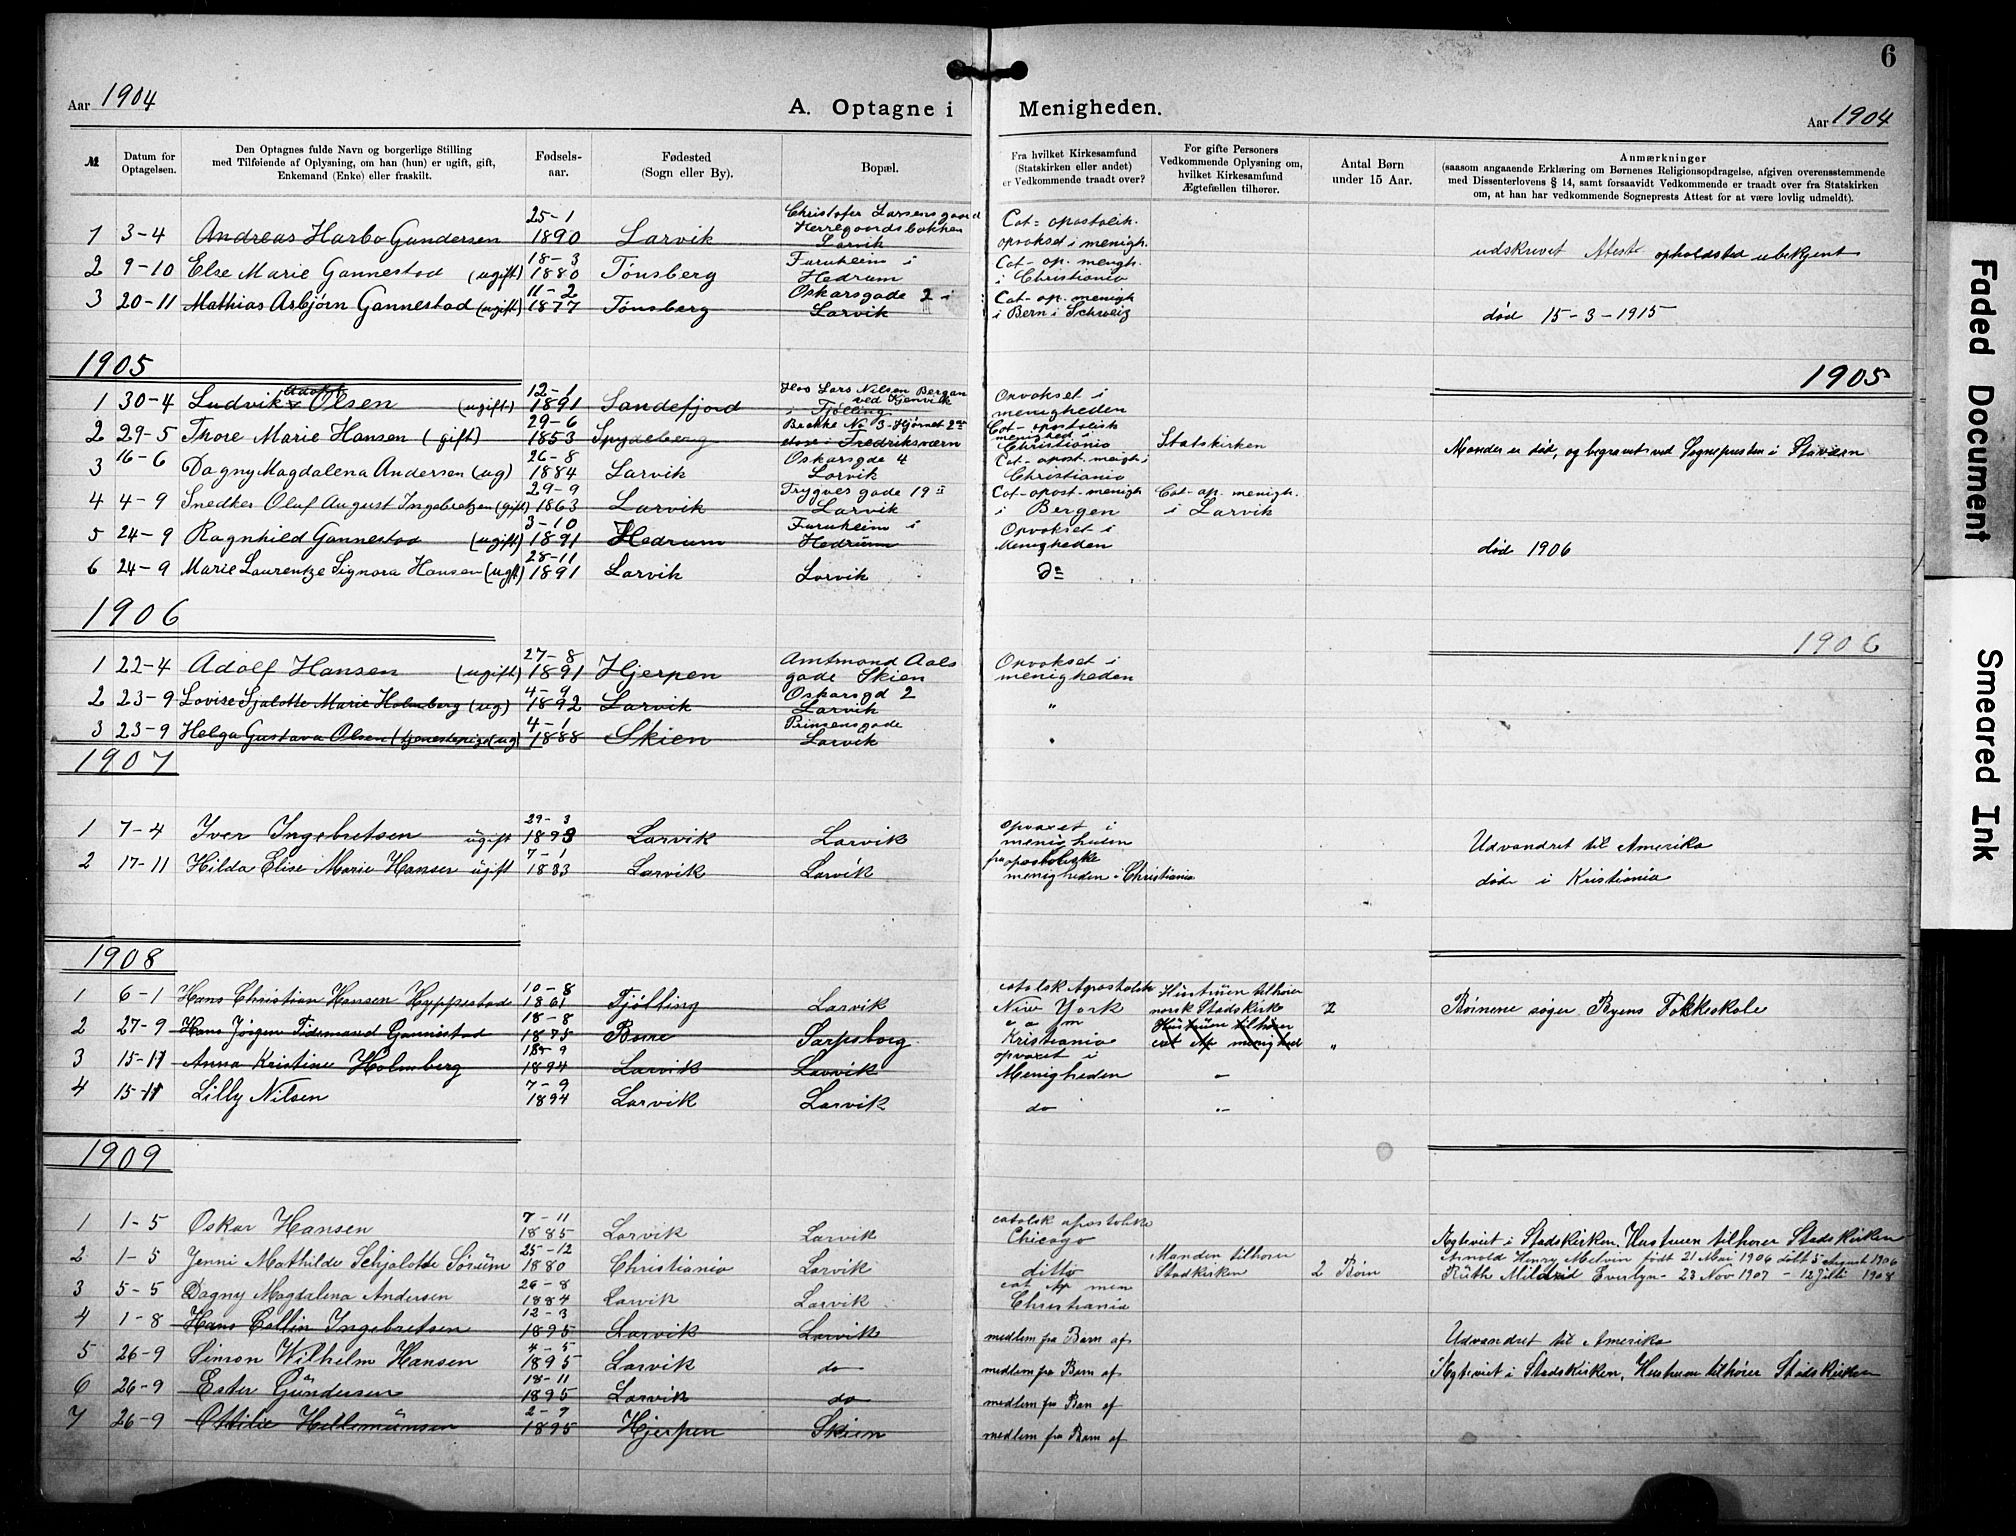 6
Aar 1904 A. Optagne i Menigheden. Aar 1904
№ | Datum for Optagelsen. | Den Optagnes fulde Navn og borgerlige Stilling med Tilføiende af Oplysning, om han (hun) er ugift, gift, Enkemand (Enke) eller fraskilt. | Fødsels-aar. | Fødested (Sogn eller By). | Bopæl. | Fra hvilket Kirkesamfund (Statskirken eller andet) er Vedkommende traadt over? | For gifte Personers Vedkommende Oplysning om, hvilket Kirkesamfund Ægtefællen tilhører. | Antal Børn under 15 Aar. | Anmærkninger (saasom angaaende Erklæring om Børnenes Religionsopdragelse, afgiven overensstemmende med Dissenterlovens § 14, samt forsaavidt Vedkommende er traadt over fra Statskirken om, at han har vedkommende Sogneprests Attest for at være lovlig udmeldt).
1 3-4 Andreas Harbo Gundersen 25-1 1890 Larvik Christofer Larsens gaard Herregaardsbakken Larvik Cat= apostolik. opvokset i menigh. udskrevet Attest opholdsted ubekjent
2 9-10 Else Marie Gannestad (ugift) 18-3 1880 Tønsberg Furuheim i Hedrum Cat- ap. menigh. i Christiania
3 20-11 Mathias Asbjørn Gannestad (ugift) 11-2 1877 Tønsberg Oskarsgade 2 i Larvik Cat- ap. menigh i Bern i Schweiz død 15-3-1915
1905 1905
1 30-4 Ludvik Adolf Olsen (ugift) 12-1 1891 Sandefjord Hos Lars Nilsen Bergan ved Kjønvik i Tjølling Opvokset i menigheden
2 29-5 Thore Marie Hansen (gift) 29-6 1853 Spydeberg Brække No 3-Hjørnet i Fredriksværn Cat- apostolisk menighed i Christiania Statskirken Manden er død, og begravet ved Sognepresten i Stavern
3 16-6 Dagny Magdalena Andersen (ug) 26-8 1884 Larvik Oskarsgade 4 Larvik Cat- apost. menigh i Christiania
4 4-9 Snedker Oluf August Ingebretsen (gift) 29-9 1863 Larvik Trygves gade 19 II Larvik Cat-apost-menigh i Bergen Cat-ap. menigh. i Larvik
5 24-9 Ragnhild Gannestad (ugift) 3-10 1891 Hedrum Furuheim i Hedrum Opvokset i Menigheden død 1906
6 24-9 Marie Laurentze Signora Hansen (ugft) 28-11 1891 Larvik Larvik Do
1906 1906
1 22-4 Adolf Hansen (ugift) 27-8 1891 Hjerpen Amtmand Aals gade Skien Opvokset i menigheden
2 23-9 Lovise Sjalotte Marie Holmberg (ug) 4-9 1892 Larvik Oskarsgd 2 Larvik "
3 23-9 Helga Gustava Olsen (tjenestepige)(ug) 4-1 1888 Skien Prinsensgade Larvik "
1907
1 7-4 Iver Ingebretsen ugift 29-3 1893 Larvik Larvik opvoxet i menigheden Udvandret til Amerika
2 17-11 Hilda Elise Marie Hansen ugift 7-1 1883 Larvik Larvik fra apostoliske menigheden i Christiania døde i Kristiania
1908
1 6-1 Hans Christian Hansen Hyppestad 10-8 1861 Tjølling Larvik catolsk Apostolisk New York Hustruen tilhører norsk Stadskirke 2 Børnene søger Byens Folkeskole
2 27-9 Hans Jørgen Tidemand Gannestad 18-8 1875 Borre Sarpsborg c a m Kristiania Hustruen tilhører cat Ap menighed "
3 15-11 Anna Kristine Holmberg 18-9 1894 Larvik Larvik opvoxet i Menigheden -
4 15-11 Lilly Nilsen 7-9 1894 Larvik Larvik do -
1909
1 1-5 Oskar Hansen 7-11 1885 Larvik Larvik catolsk apostolisk Chicago Ægteviet i Stadskirken. Hustruen tilhører Stadskirken
2 1-5 Jenni Mathilde Schjalotte Sørum 25-12 1880 Christiania Larvik ditto Manden tilhører Stadkirken 2 Børn Arnold Henry Melvin født 21 Mai 1906 døbt 5 August 1906 Ruth Mildrid Everlyn - 23 Nov 1907 - 12 Juli 1908
3 5-5 Dagny Magdalena Andersen 26-8 1884 Larvik Larvik cat Ap men Christiania
4 1-8 Hans Collin Ingebretsen 12-3 1895 Larvik Larvik medlem fra Barn af Udvandret til Amerika
5 26-9 Simon Wilhelm Hansen 4-5 1895 Larvik do medlem fra Barn af Ægteviet i Stadskirken, Hustruen tilhører Stadskirken
6 26-9 Ester Gundersen 18-11 1895 Larvik do medlem fra Barn af
7 26-9 Ottilie 2-7 1895 Hjerpen Skien medlem fra Barn af
Faded Document
Smeared Ink